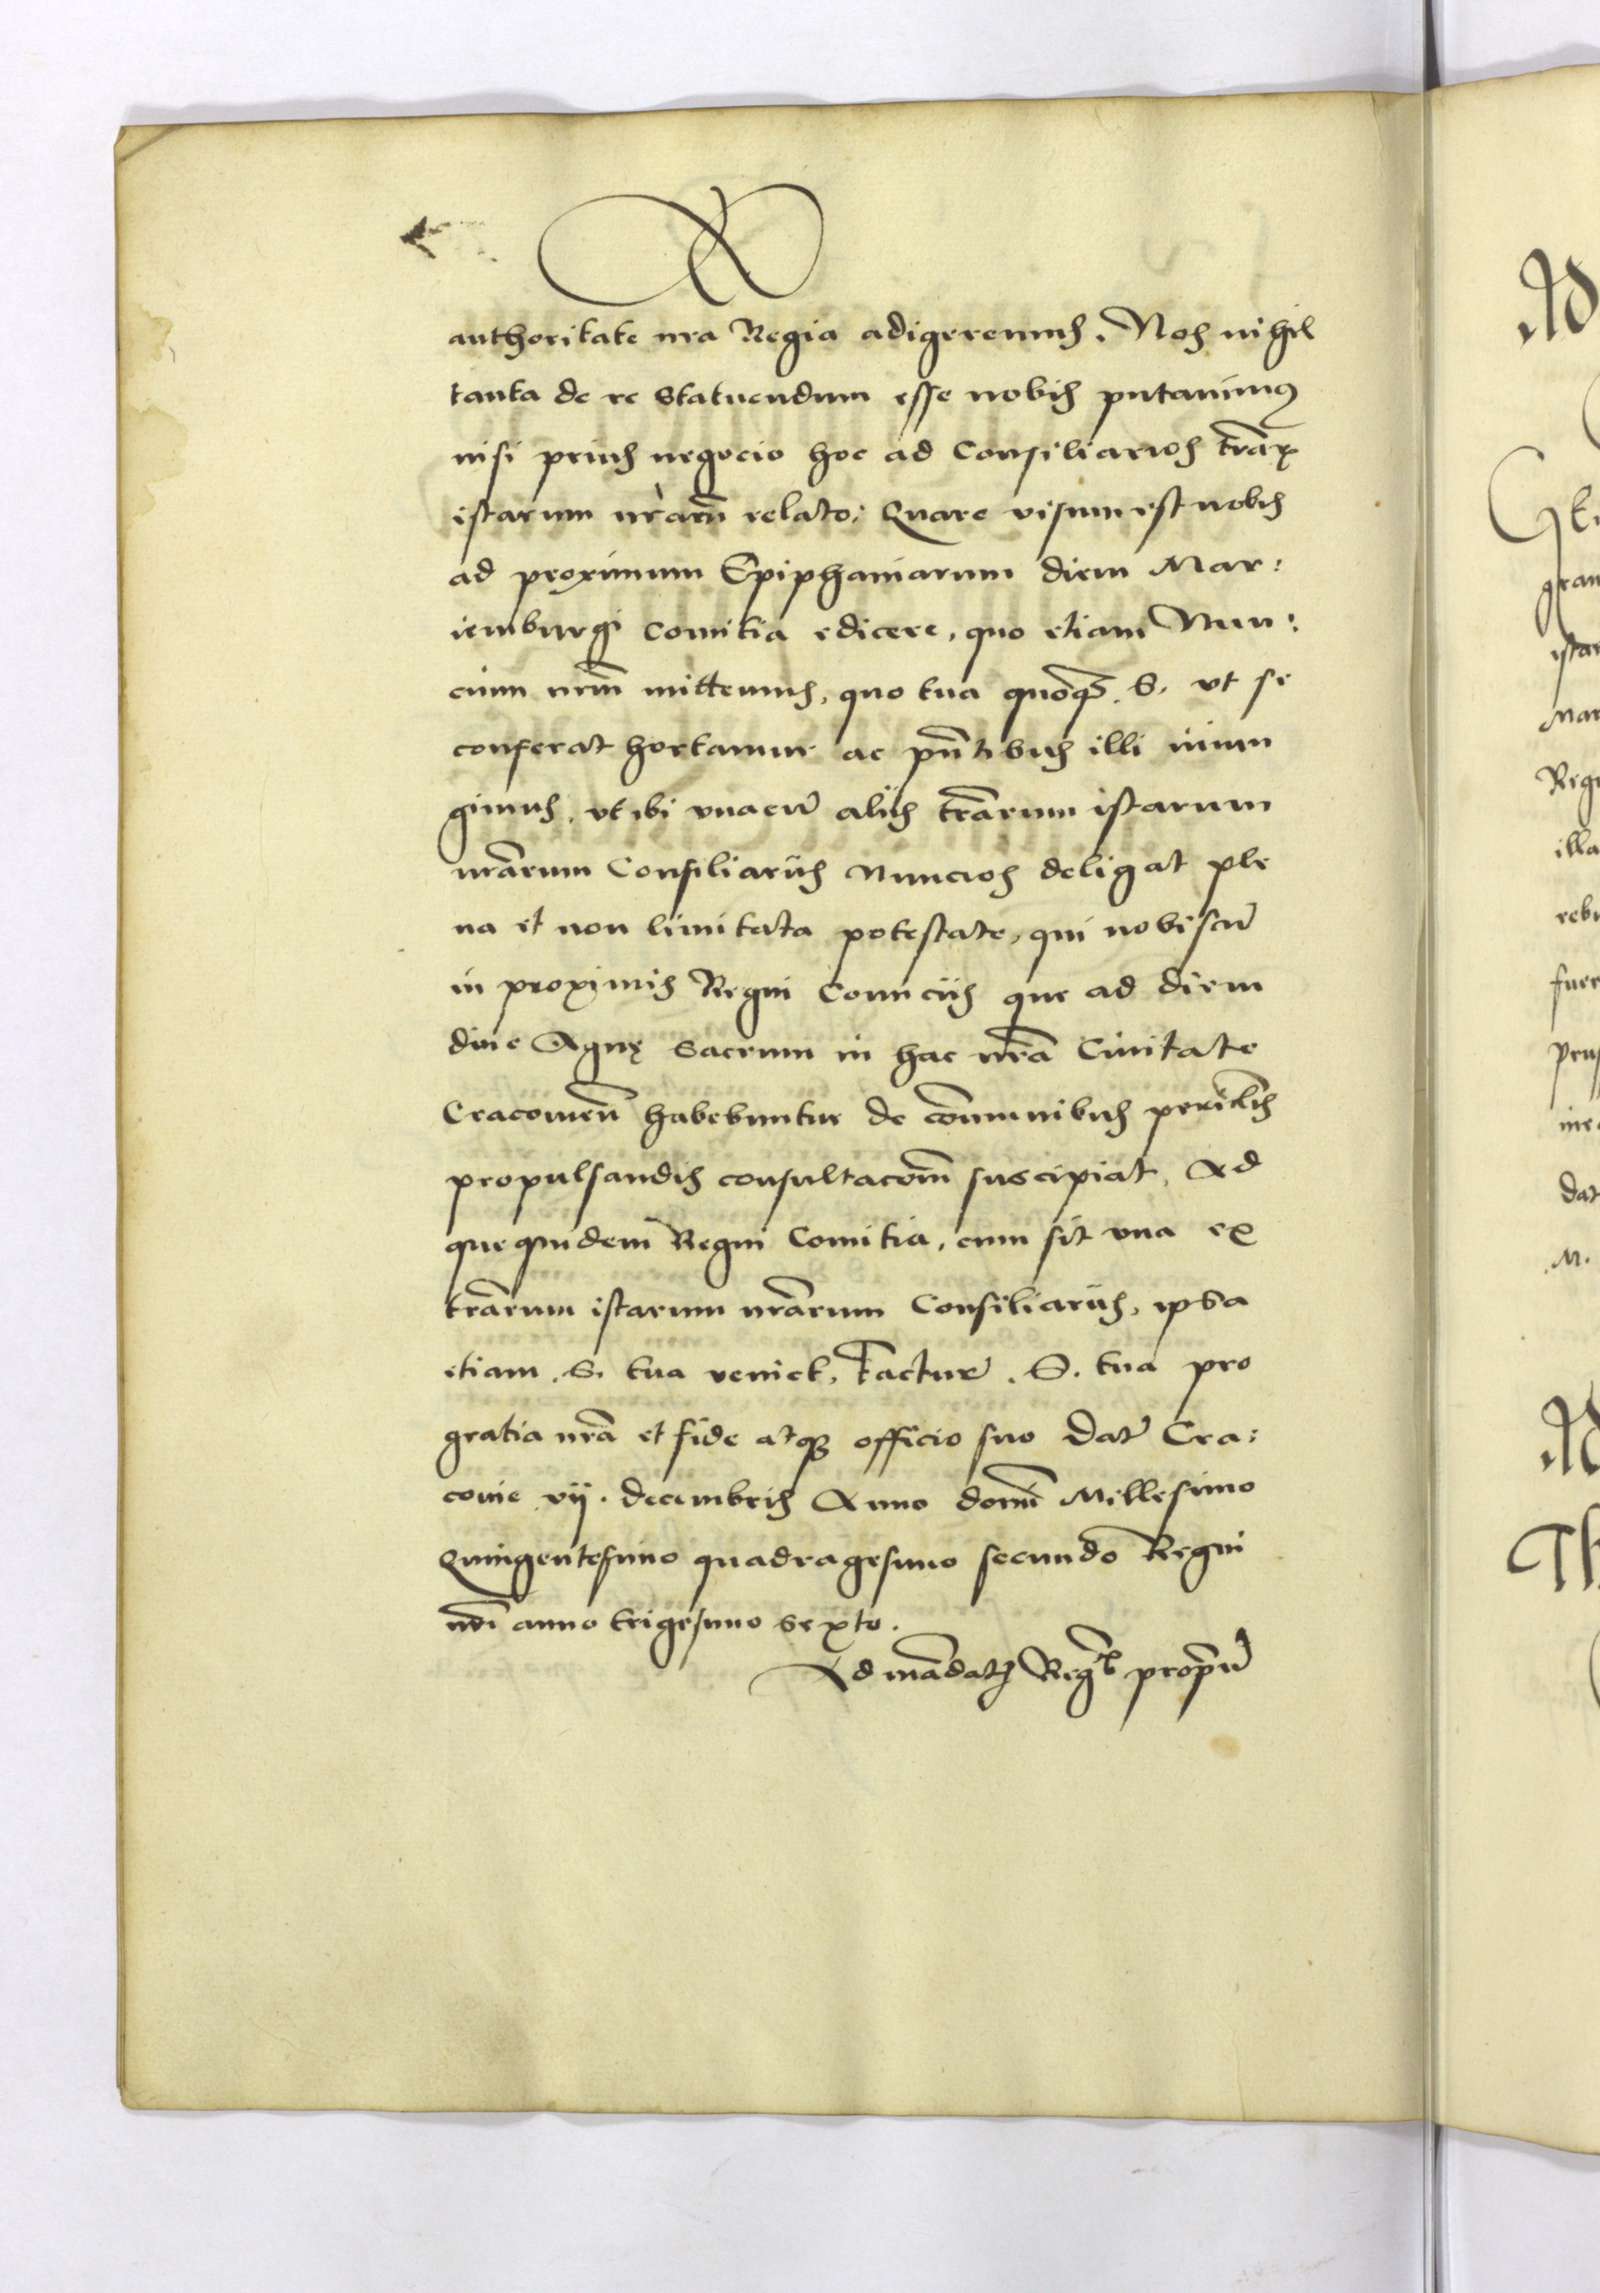 authoritate nra Regia adigeremus. Nos nihil
tanta de re statuendum esse nobis putauimus
nisi prius negocio hoc ad Consiliarios trarum
istarum nrarum relato: Quare visum est nobis
ad proximum Epiphaniarum diem Mar:
iemburgi Comitia edicere, quo etiam Nun:
cium nrm mittemus, quo tua quoque. S. vt se
conferat hortamur ac pntibus illi iniun
gimus, vt ibi vnacum aliis trarum istarum
nrarum Consiliariis Nuncios deligat ple
na et non limitata potestate, qui nobiscum
in proximis Regni Comiciis que ad diem
diue Agnę sacrum in hac nra Ciuitate
Cracouien habebuntur de communibus periclis
propulsandis consultacom suscipiat, Ad
que quidem Regni Comitia, cum sit vna ex
trarum istarum nrarum Consiliariis, ipsa
etiam .S. tua veniet, factura .S. tua pro
gratia nra et fide atque officio suo Dat Cra:
couie vij. decembris Anno domi Millesimo
Quingentesimo quadragesimo secundo Regni
nri anno trigesimo sexto.
Ad mandatum Regium proprium